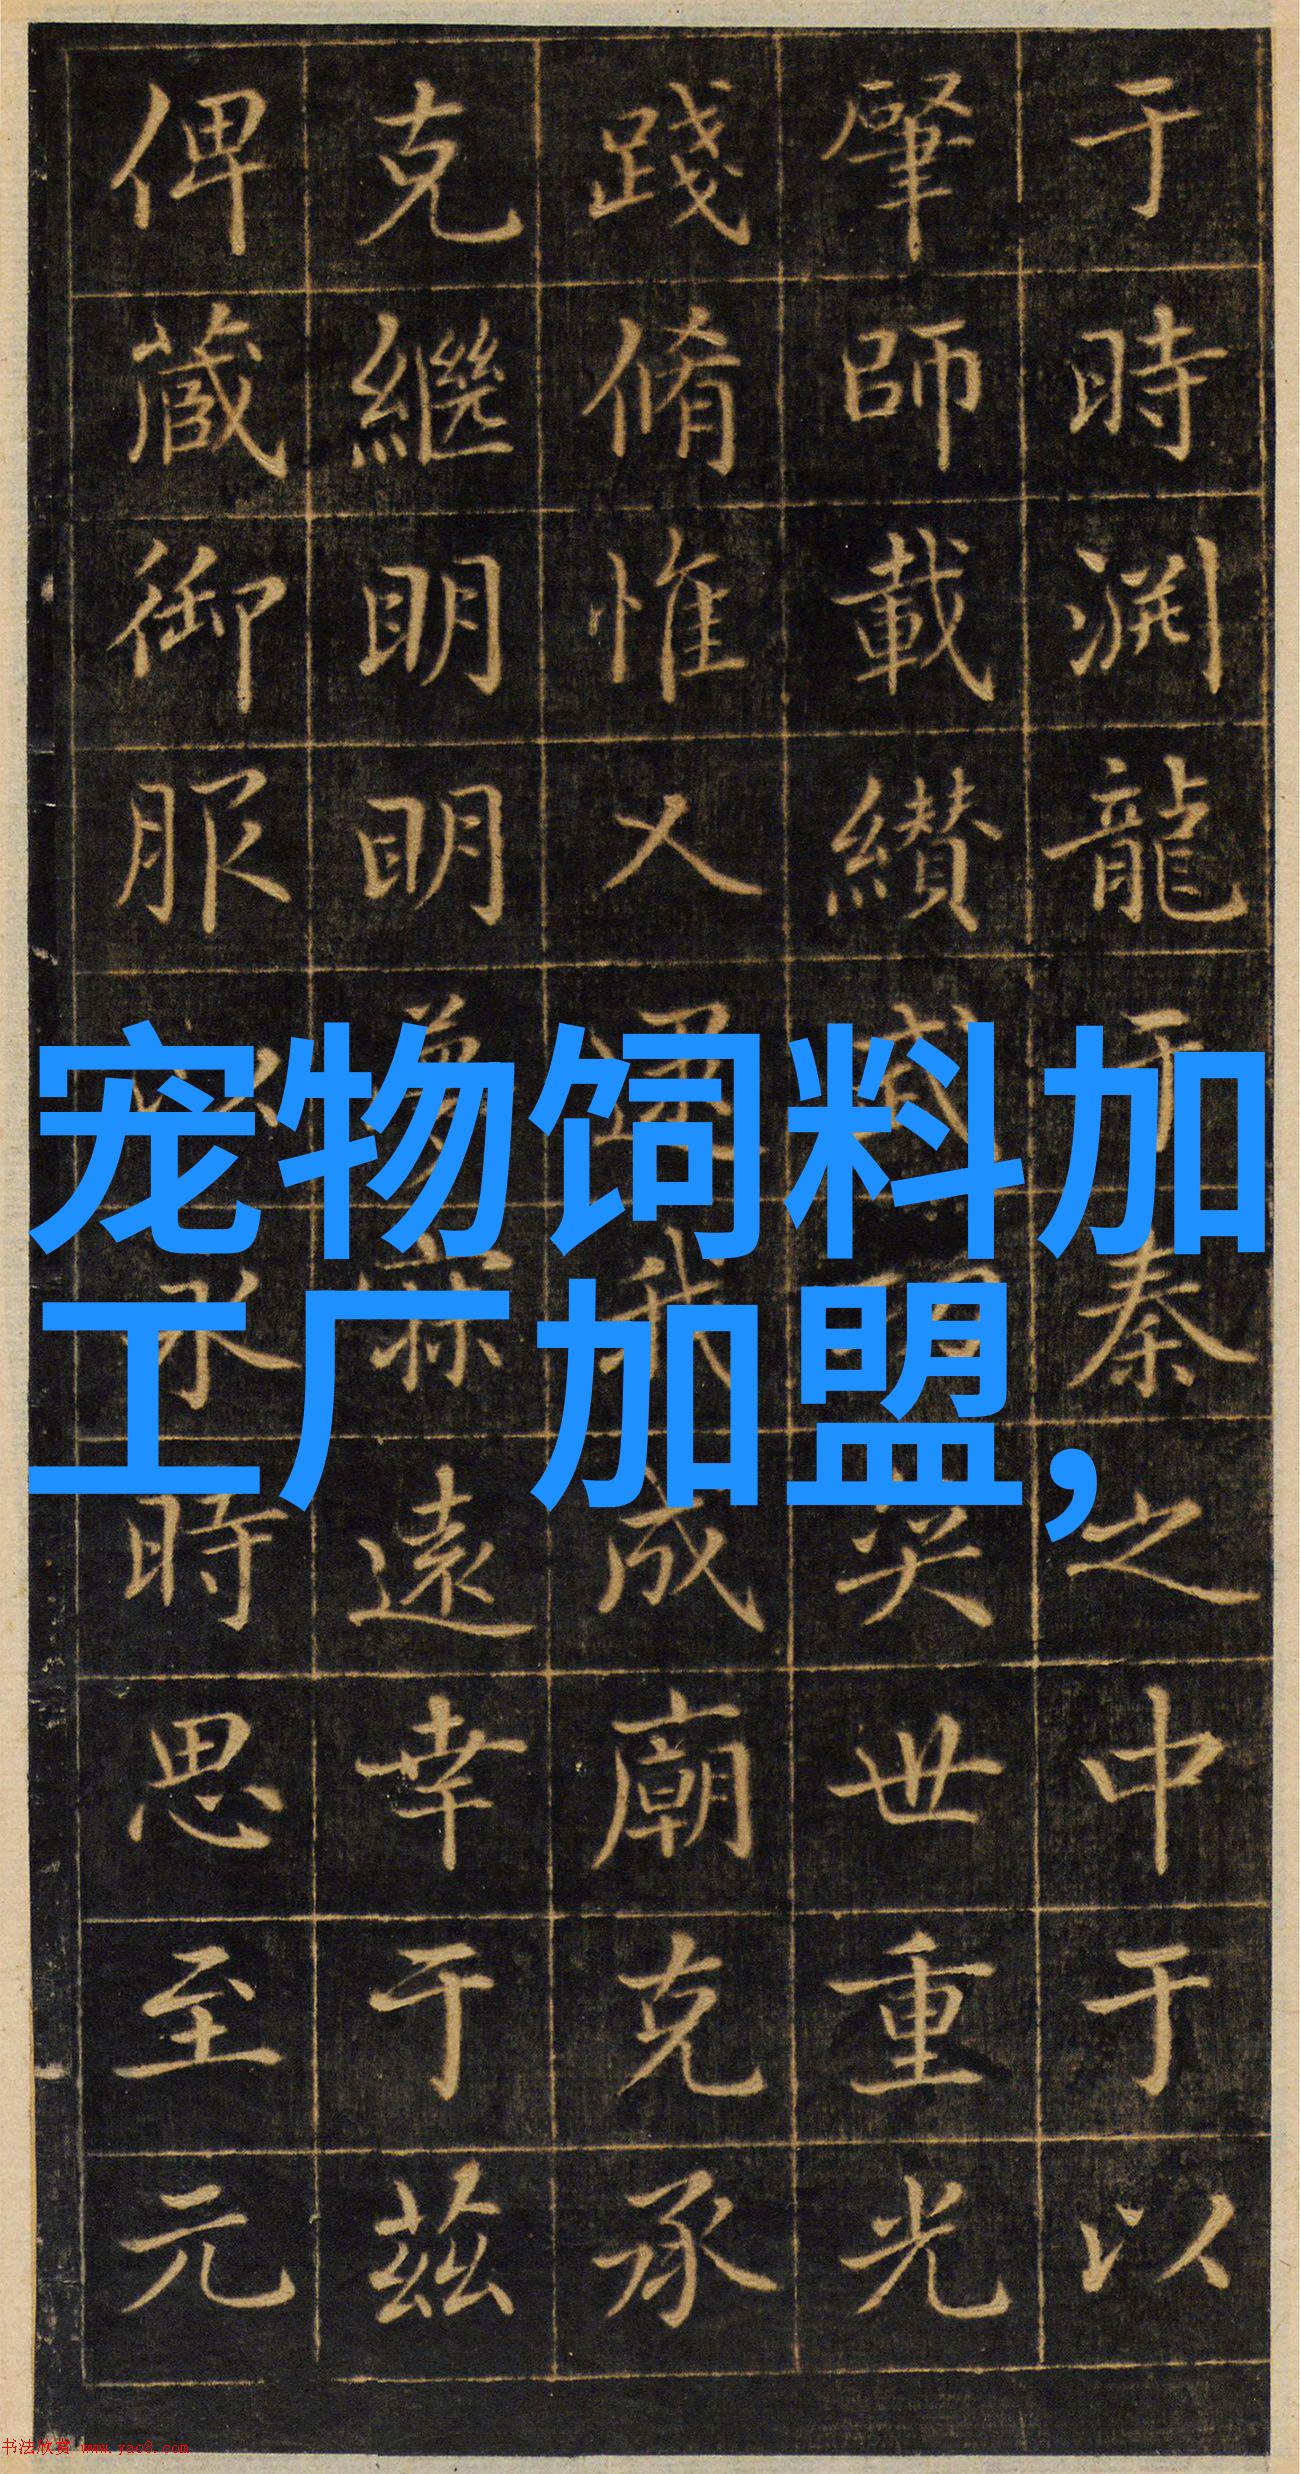 于時渕龍于秦之中于以
肇師載纘奕世重光
踐脩惟乂我成廟克承
克繼明明遠幸于茲
俾蕆御服永時思至元
宠物饲料加
工厂加盟,
书法欣赏 www.yac8.com